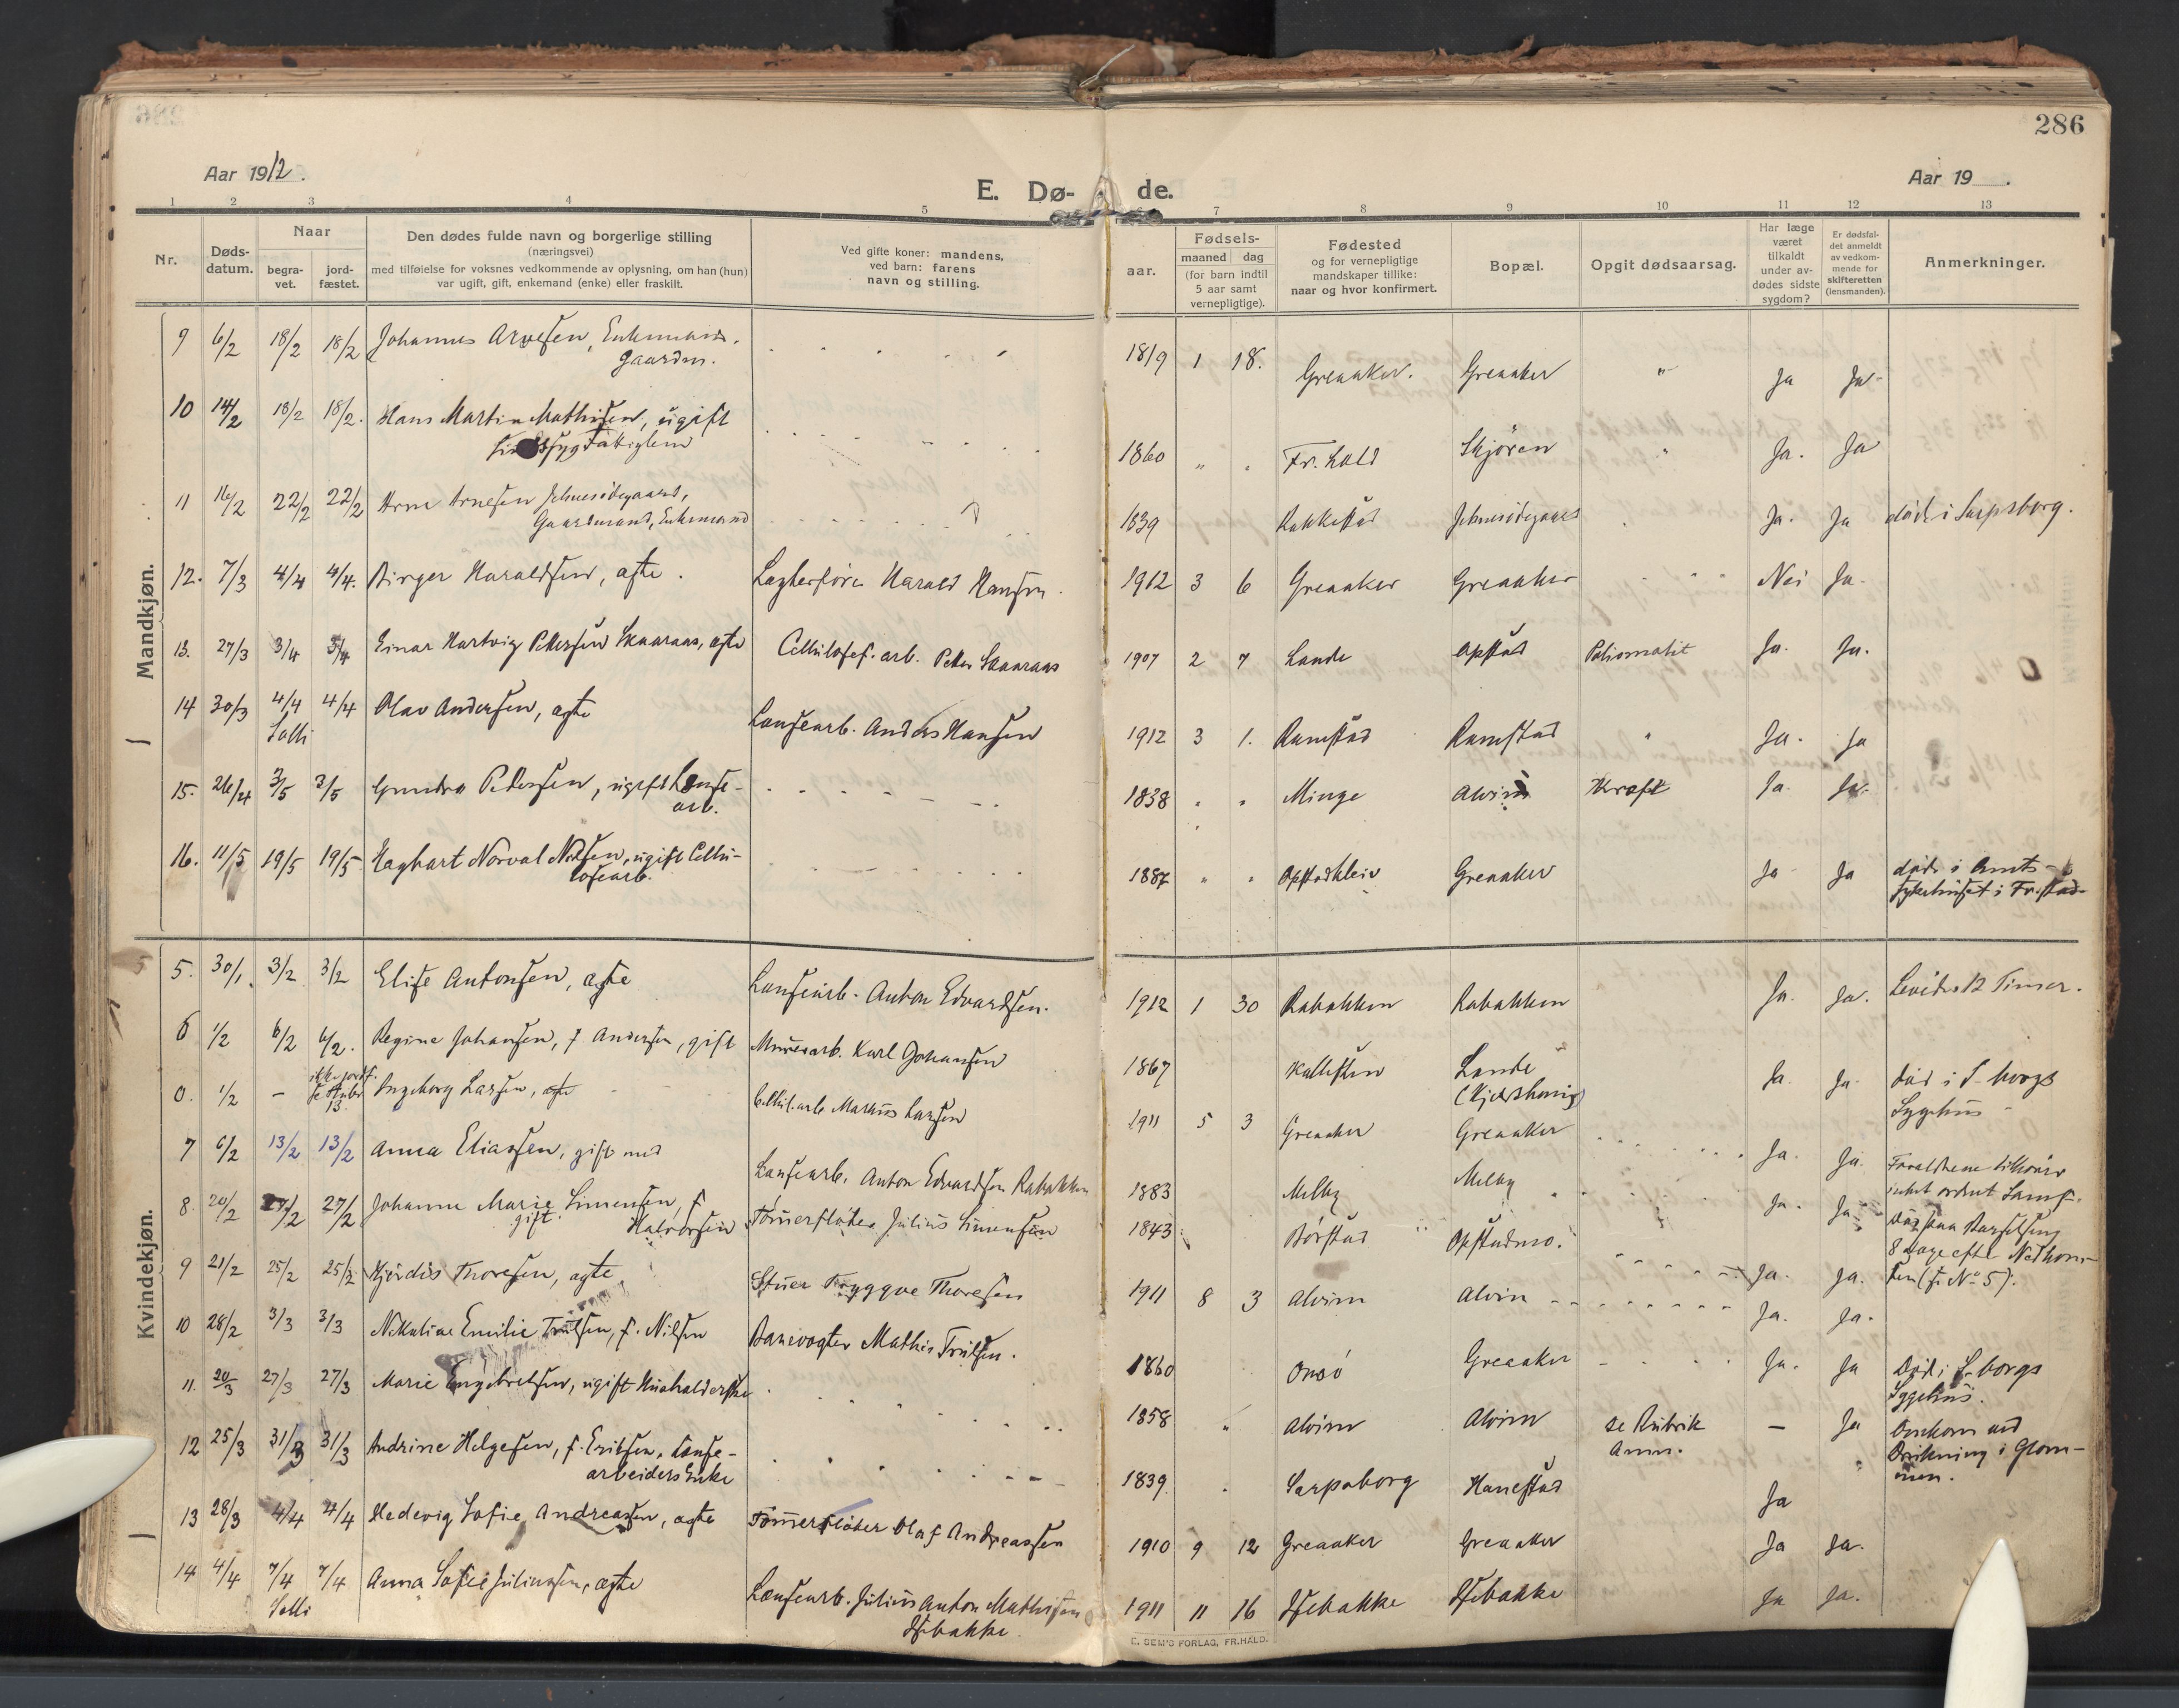 286
Aar 1912.
E. Dø-
de.
Aar 19 .
1 2 3 4 5 7 8 9 10 11 12 13
Nr.
Døds-
datum.
Naar
begra-
vet.
jord-
fæstet.
Den dødes fulde navn og borgerlige stilling
(næringsvei)
med tilføielse for voksnes vedkommende av oplysning, om han (hun)
var ugift, gift, enkemand (enke) eller fraskilt.
Ved gifte koner: mandens,
ved barn: farens
navn og stilling.
aar.
Fødsels-
maaned dag
(for barn indtil
5 aar samt
vernepligtige).
Fødested
og for vernepligtige
mandskaper tillike:
naar og hvor konfirmert.
Bopæl.
Opgit dødsaarsag.
Har læge
været
tilkaldt
under av-
dødes sidste
sygdom?
Er dødsfal-
det anmeldt
av vedkom-
mende for
skifteretten
(lensmanden).
Anmerkninger.
Mandkjøn.
9 6/2 18/2 18/2 Johannes Arvesen, Enkemand,
Gaardm.
1819 1 18. Greaaker. Greaaker " Ja Ja
10 14/2 18/2 18/2. Hans Martin Mathisen, ugift
1860 " " Fr. Hald Skjøren " Ja. Ja
11 16/2 22/2 22/2 Arne Arnesen
Gaardmand, Enkemand
1839 Rakkestad Ja. Ja død i Sarpsborg.
12. 7/3 4/4 4/4. Birger Haraldsen, ægte. Harald Hansen.
1912 3 6 Greaaker Greaaker Nei Ja.
13. 27/3 3/4 3/4 Einar Hartvig Pettersen Skaaraas, ægte Cellulosef. arb. Petter Skaaraas
1907 2 7 Lande Opstad Ja. Ja.
14 30/3 4/4 4/4 Olav Andersen, ægte Lænsearb. Anders Hansen
Solli
1912 3 1. Ramstad Ramstad " Ja. Ja
15. 26/4 3/5 3/5 Pedersen, ugift Lænse-
arb.
1838 " " Minge Alvim Kræft Ja Ja.
16. 11/5 19/5 19/5 Hagbart Norval Nilsen, ugift Cellu-
losearb.
1887 " " Opstadkleiv Greaaker Ja Ja døde i Amts-
sykehuset i Fr.stad.
Kvindekjøn.
5. 30/1. 3/2 3/2 Elise Antonsen, ægte Lænsearb. Anton Edvardsen.
1912 1 30 Rabakken Rabakken Ja. Ja. Levede 12 Timer.
6 1/2 6/2 6/2. Regine Johansen, f. Andersen, gift Murerarb. Karl Johansen
1867 Kallesten Lande
Ja. Ja. død i S-borgs
Sygehus
0. 1/2 – ikke jordf.
13. Ingeborg Larsen, ægte Cellul. arb. Markus Larsen
1911 5 3 Greaaker Greaaker Ja. Ja. Forældrene tilhører
7 6/2 13/2 13/2 Anna Eliassen, gift med Lænsearb. Anton Edvardsen Rabakken
1883 Melby Melby Ja. Ja Død paa Barselseng
8 dage efter Nedkom-
sten (f. No 5).
8. 20/2 27/2 27/2 Johanne Marie Simensen, f.
gift. Halvorsen Tømmerfløter Julius Simensen
1843 Børstad Opstadmo. Ja. Ja.
9 21/2 25/2 25/2 Hjørdis Thoresen, ægte Stuer Tryggve Thoresen
1911 8 3 Alvim Alvim Ja. Ja.
10 28/2 3/3 3/3 Nikoline Emilie Trulsen, f. Nilsen Banevogter Mathis Trulsen.
1860 Onsø Greaaker Ja. Ja Død i S-borgs
Sygehus.
11. 20/3 27/3 27/3 Marie Engebretsen, ugift Husholderske
1858 " Alvim Alvim se Rubrik
Anm. – Ja Omkom ved
Drukning i Glom-
men.
12 25/3 31/3 31/3 Andrine Helgesen, f. Eriksen, Lænse-
arbeiders Enke
1839 Sarpsborg Hanestad Ja
13 28/3 4/4 4/4 Hedevig Sofie Andreassen, ægte Tømmerfløter Olaf Andreassen
1910 9 12 Greaaker Greaaker Ja Ja.
14 4/4 7/4 7/4 Anna Sofie Juliussen, ægte Lænsearb. Julius Anton Mathisen
Solli
Isebakke.
1911 11 16 Isebakke Isebakke Ja Ja.
E. SEM'S FORLAG, FR.HALD.